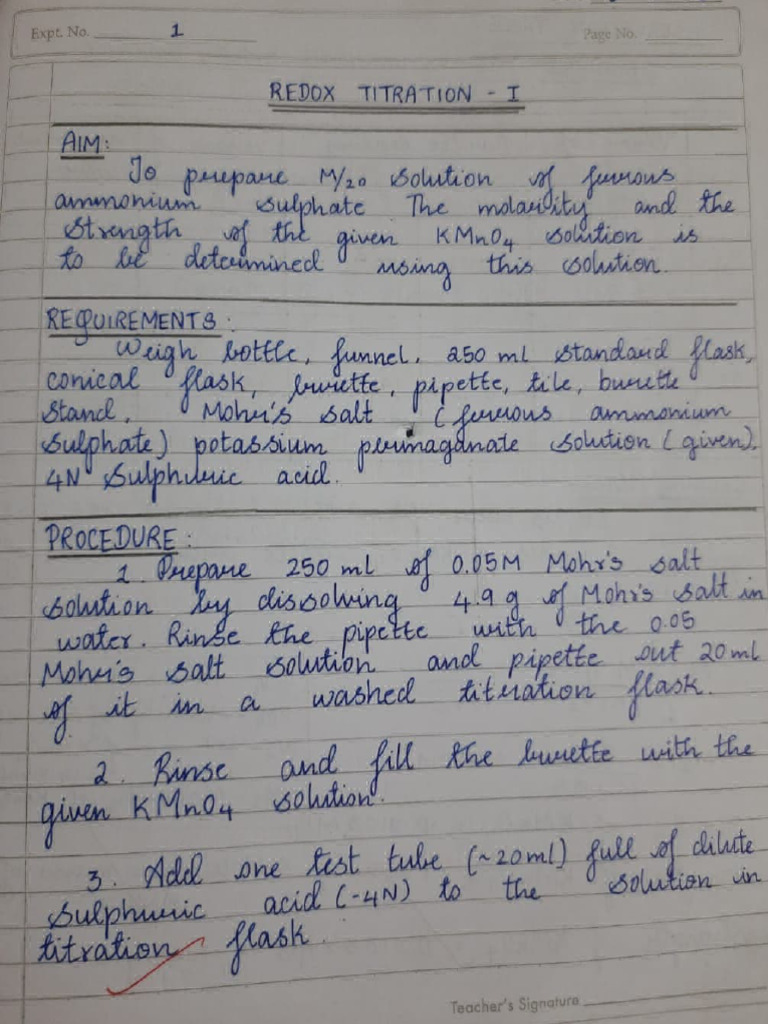 Expt. No. 1
Page No.
REDOX TITRATION - I
AIM:
To prepare M/20 solution of ferrous
ammonium sulphate The molarity and the
strength of the given KMnO4 solution is
to be determined using this solution.
REQUIREMENTS:
Weigh bottle, funnel, 250 ml standard flask,
conical flask, burette, pipette, tile, burette
stand, Mohr's salt (ferrous ammonium
sulphate) potassium permaganate solution (given),
4N sulphuric acid.
PROCEDURE:
1. Prepare 250 ml of 0.05M Mohr's salt
solution by dissolving 4.9 g of Mohr's salt in
water. Rinse the pipette with the 0.05
Mohr's salt solution and pipette out 20 ml
of it in a washed titration flask.
2. Rinse and fill the burette with the
given KMnO4 solution.
3. Add one test tube (~20ml) full of dilute
sulphuric acid (-4N) to the solution in
titration flask.
Teacher's Signature